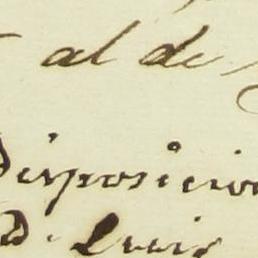 al de
Disposicion
D. Luis